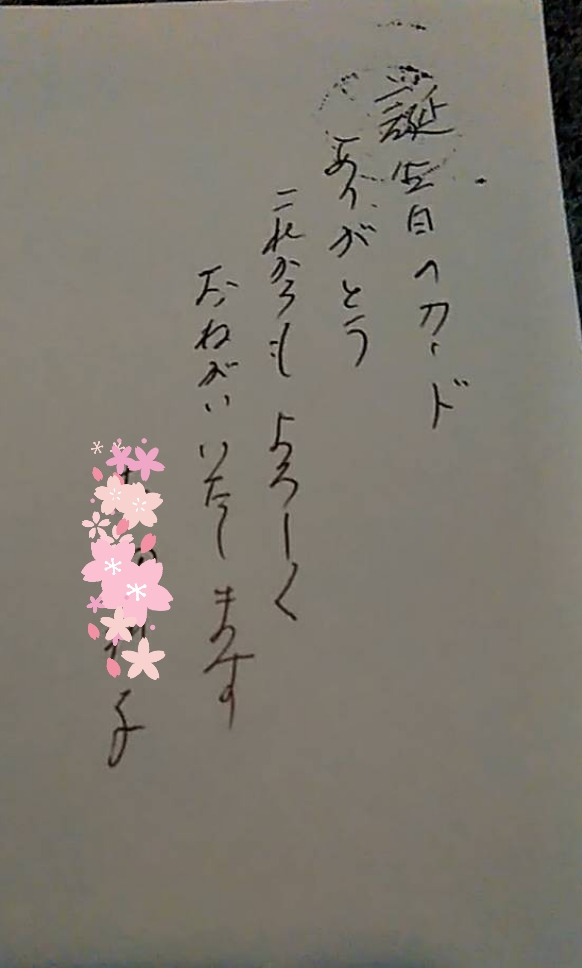 誕生日のカード
ありがとう
これからもよろしく
おねがいいたします
子